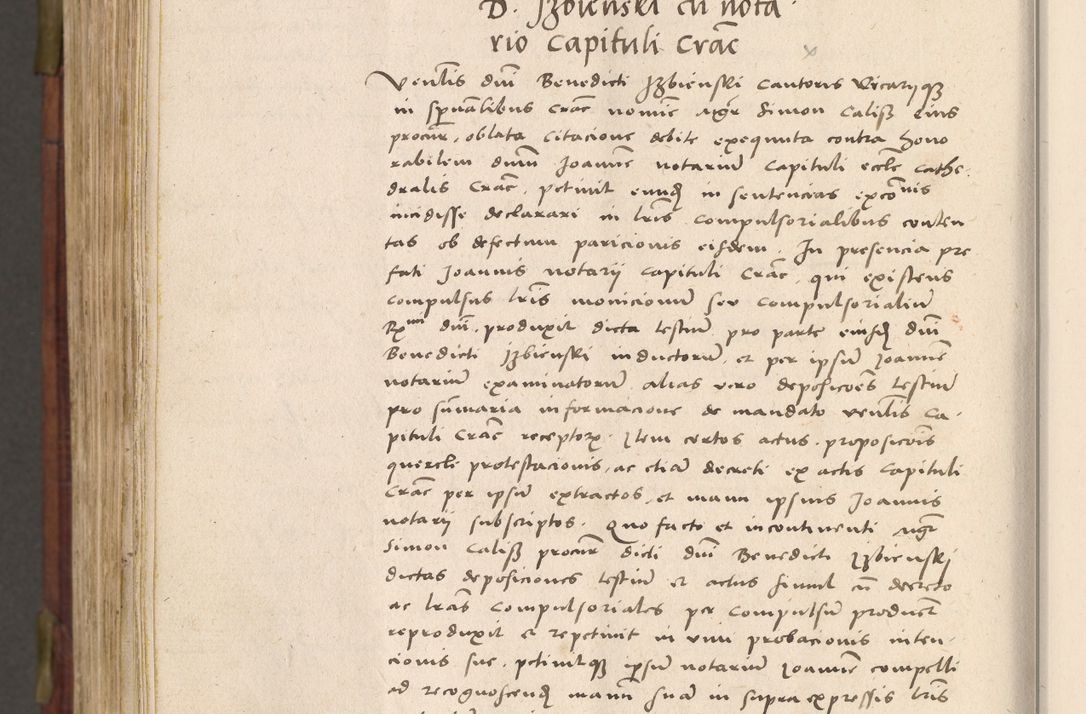 D. Jzbienski cū nota
rio Capituli Crac̄
Ven̄lis dn̄i Benedicti Jzbienski Cantoris Vicarijqȝ
in sp̄ualibus Crac̄ nomie mgr̄ Simon Calisz eius
procur̄, oblata Citacione debite exequuta contra hono
rabilem dnm̄ Joannē notariū Capituli eccle cathe-
dralis Crac̄, petiuit eundē in sentencias excōis
incidisse declarari in lr̄is compulsorialibus conten
tas ob defectum paricionis eisdem. In presencia pre
fati Joannis notarij Capituli Crac̄, qui existens
compulsus lr̄is monicionū seu compulsorialiū
Rmi dn̄i, produxit dicta testiū pro parte eiusdē dn̄i
Benedicti Jzbienski inductorū, et per ipsum Joannē
notarium examinatorū. alias vero deposicoēs testiū
pro sum̄aria informacione de mandato ven̄lis Ca-
pituli Crac̄ receptorꝝ. Item certos actus, proposicois
querele protestacionis, ac etiā decreti ex actis Capituli
Crac̄ per ipsū extractos, et manu ipsius Joannis
notarij subscriptos. Quo facto et incontinenti mgr̄
Simon Calisz procur̄ dicti dn̄i Benedicti Jzbienskj
dictas deposiciones testiū et actus simul cū decreto
ac lr̄as compulsoriales per compulsū product̄
reproduxit et repetiuit in vim probacionis inten-
cionis sue, petiuitqȝ ipsum notariū Joannē compelli
ad recognoscendū manū suā in supraexpressis lr̄is